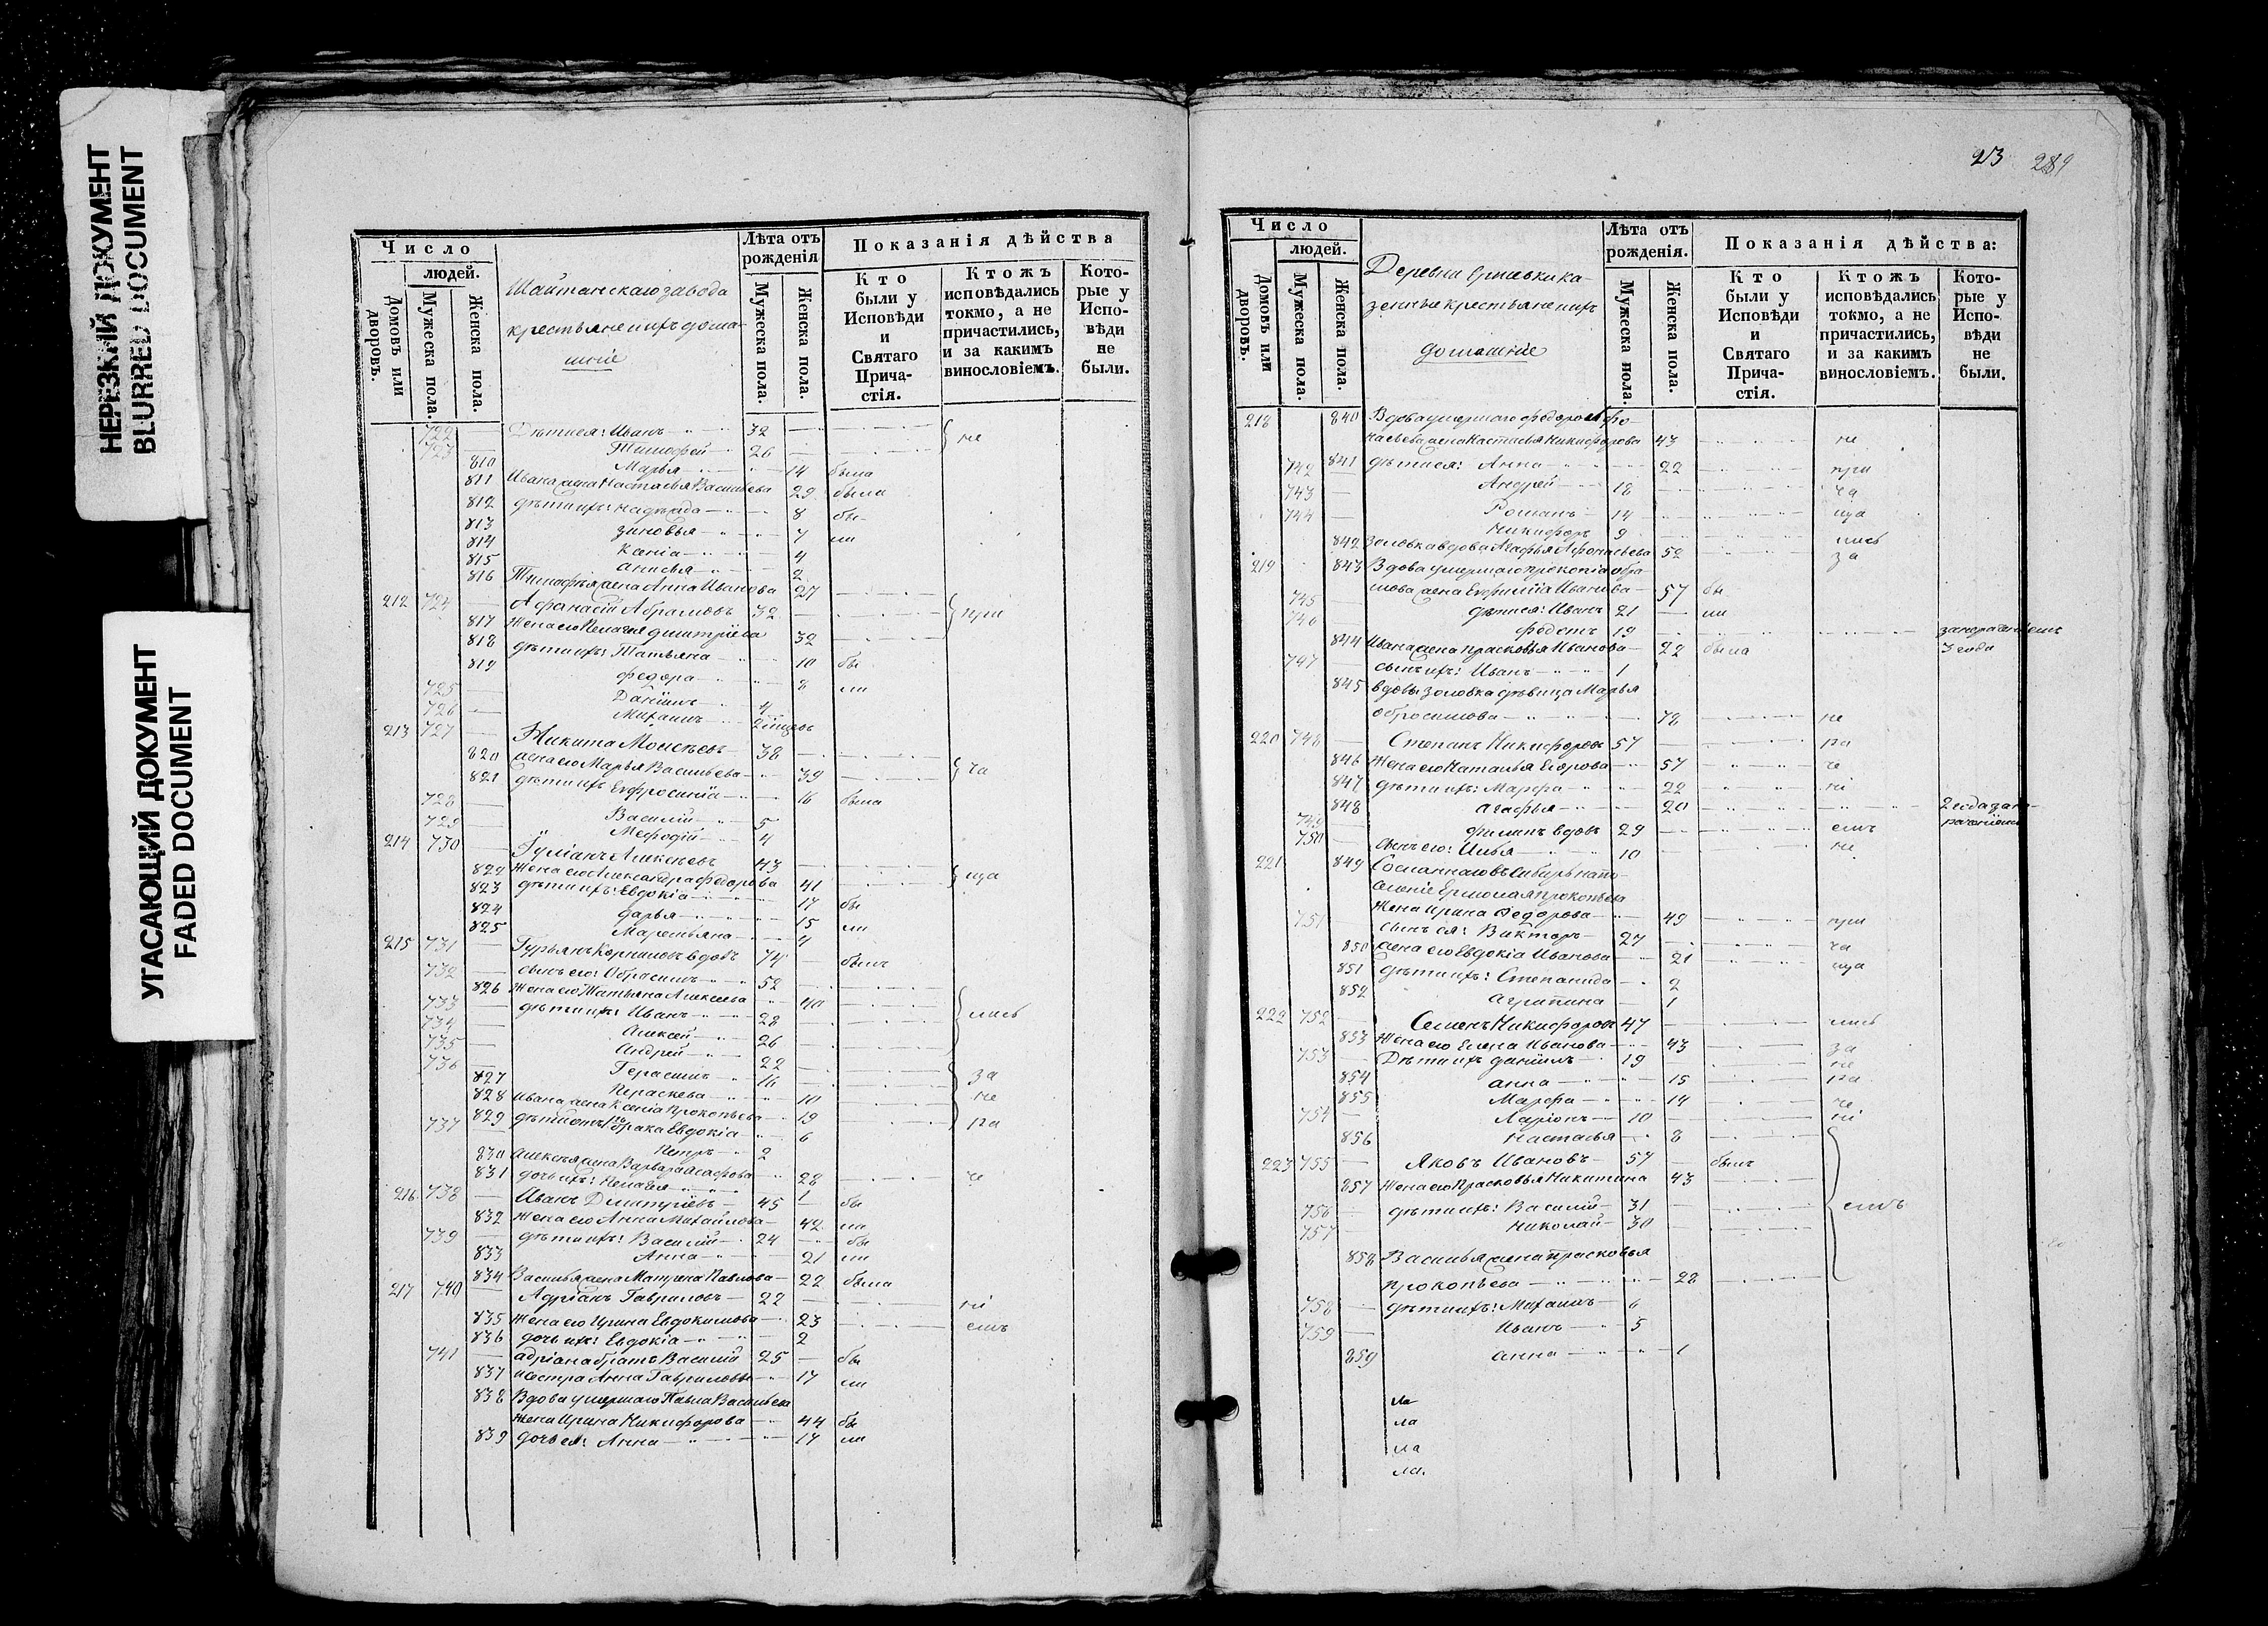 НЕРЕЗКИЙ ДОКУМЕНТ
BLURRED DOCUMENT
УГАСАЮЩИЙ ДОКУМЕНТ
FADED DOCUMENT
Число
людей.
Домовъ или дворовъ.
Мужеска пола.
Женска пола.
Шайтанскаго завода
крестьяне и ихъ дома-
шніе
Лѣта отъ рожденія
Мужеска пола.
Женска пола.
Показанія дѣйства
Кто были у Исповѣди и Святаго Прича-стія.
Ктожъ исповѣдались токмо, а не причастились, и за какимъ винословіемъ.
Кото-рые у Испо-вѣди не были.
722 — Дѣти ея: Иванъ 32 не
723 — Тимофей 26
810 Марья 14 была
811 Ивана жена Настасья Васильева 29 была
812 дѣти ихъ: Надежда 8 бы-
813 Зиновья 7 ли
814 Ксенія 4
815 Анисья 2
816 Тимофея жена Анна Иванова 27
212 724 — Афанасій Абрамовъ 32 при
817 Жена его Пелагея Дмитріева 32
818 дѣти ихъ: Татьяна 10 бы
819 Федора 8 ли
725 — Даніилъ 4
726 — Михаилъ
213 727 — Никита Моисѣевъ 38
820 жена его Марья Васильева 39 ча
821 дѣти ихъ Евфросинія 16 была
728 — Василій 5
729 — Мефодій 4
214 730 — Іуліанъ Алексѣевъ 43
822 Жена его Александра Федорова 41 ща
823 дѣти ихъ: Евдокія 17 бы
824 Дарья 15 ли
825 Маремьяна 4
215 731 — Гурьянъ Корниловъ вдовъ 74 — былъ
732 — сынъ его: Обросимъ 52
826 Жена его Татьяна Алексеева 40
733 — дѣти ихъ: Иванъ 28 лись
734 — Алексей 26
735 — Андрей 22
736 — Герасимъ 16 за
827 Параскева 10 не
828 Ивана жена Ксенія Прокопьева 19
829 дѣти отъ 1го брака Евдокія 6 ра
737 Петръ 2
830 Алексѣя жена Варвара Агафова 22 че
831 дочь ихъ: Пелагея 1
216 738 — Иванъ Дмитріевъ 45 — бы
832 Жена его Анна Михайлова 42 ли
739 — дѣти ихъ: Василій 24 — бы
833 Анна 21 ли
834 Василья жена Матрена Павлова 22 была
217 740 — Адріанъ Гавриловъ 22 ні
835 Жена его Ирина Евдокимова 23 емъ
836 дочь ихъ: Евдокія 2
741 — Адріана братъ Василій 25 — бы
837 и сестра Анна Гаврилова 17 ли
838 Вдова умершаго Павла Васильева
жена Ирина Никифорова 44 бы
839 дочь ея: Анна 14 ли
213 289
Число
людей.
Домовъ или дворовъ.
Мужеска пола.
Женска пола.
Деревни Ершевки ка-
зенные крестьяне и ихъ
домашніе
Лѣта отъ рожденія.
Мужеска пола.
Женска пола.
Показанія дѣйства:
Кто были у Исповѣди и Святаго Прича-стія.
Ктожъ исповѣдались токмо, а не причастились, и за какимъ винословіемъ.
Кото-рые у Испо-вѣди не были.
218 840 Вдова умершаго Федора Афо-
насьева жена Настасья Никифорова 43 не
841 дѣти ея: Анна 22 при
742 — Андрей 18 ча
743 — Романъ 14 ща
744 — Никифоръ 9 лись
842 Золовка вдова Агафья Афонасьева 52 за
219 843 Вдова умершаго Прокопія Обра-
мова жена Евфимія Иванова 57 бы
745 дѣти ея: Иванъ 21 — ли
746 Федотъ 19
844 Ивана жена Прасковья Иванова 22 была 3 года
747 — сынъ ихъ: Иванъ 1
845 вдовы золовка дѣвица Марья
Обросимова 72 не
220 748 — Степанъ Никифоровъ 57 ра
846 Жена его Наталья Егорова 57 че
847 дѣти ихъ: Марфа 22 ні
848 Агафья 20
749 — Филипъ вдовъ 29 емъ
750 — сынъ его: Илья 10 не
221 849 Сосланнаго въ Сибирь на по-
селеніе Ермолая Прокопьева
Жена Ирина Федорова 49 при
751 сынъ ея: Викторъ 27 ча
850 жена его Евдокія Иванова 21 ща
851 дѣти ихъ: Степанида 2
852 Агрипина 1
222 752 — Семенъ Никифоровъ 47 лись
853 Жена его Елена Иванова 43 за
753 — Дѣти ихъ Даніилъ 19 не
854 Анна 15 ра
855 Марфа 14 че
754 — Ларіонъ 10 ні
856 Настасья 8
223 755 — Яковъ Ивановъ 57 — былъ
857 Жена его Прасковья Никитина 43
756 — дѣти ихъ: Василій 31 емъ
757 — Николай 30
858 Василья жена Прасковья
Прокопьева 28
758 — дѣти ихъ: Михаилъ 6
759 — Иванъ 5
859 Анна 1
ла
ла
ла
ла.